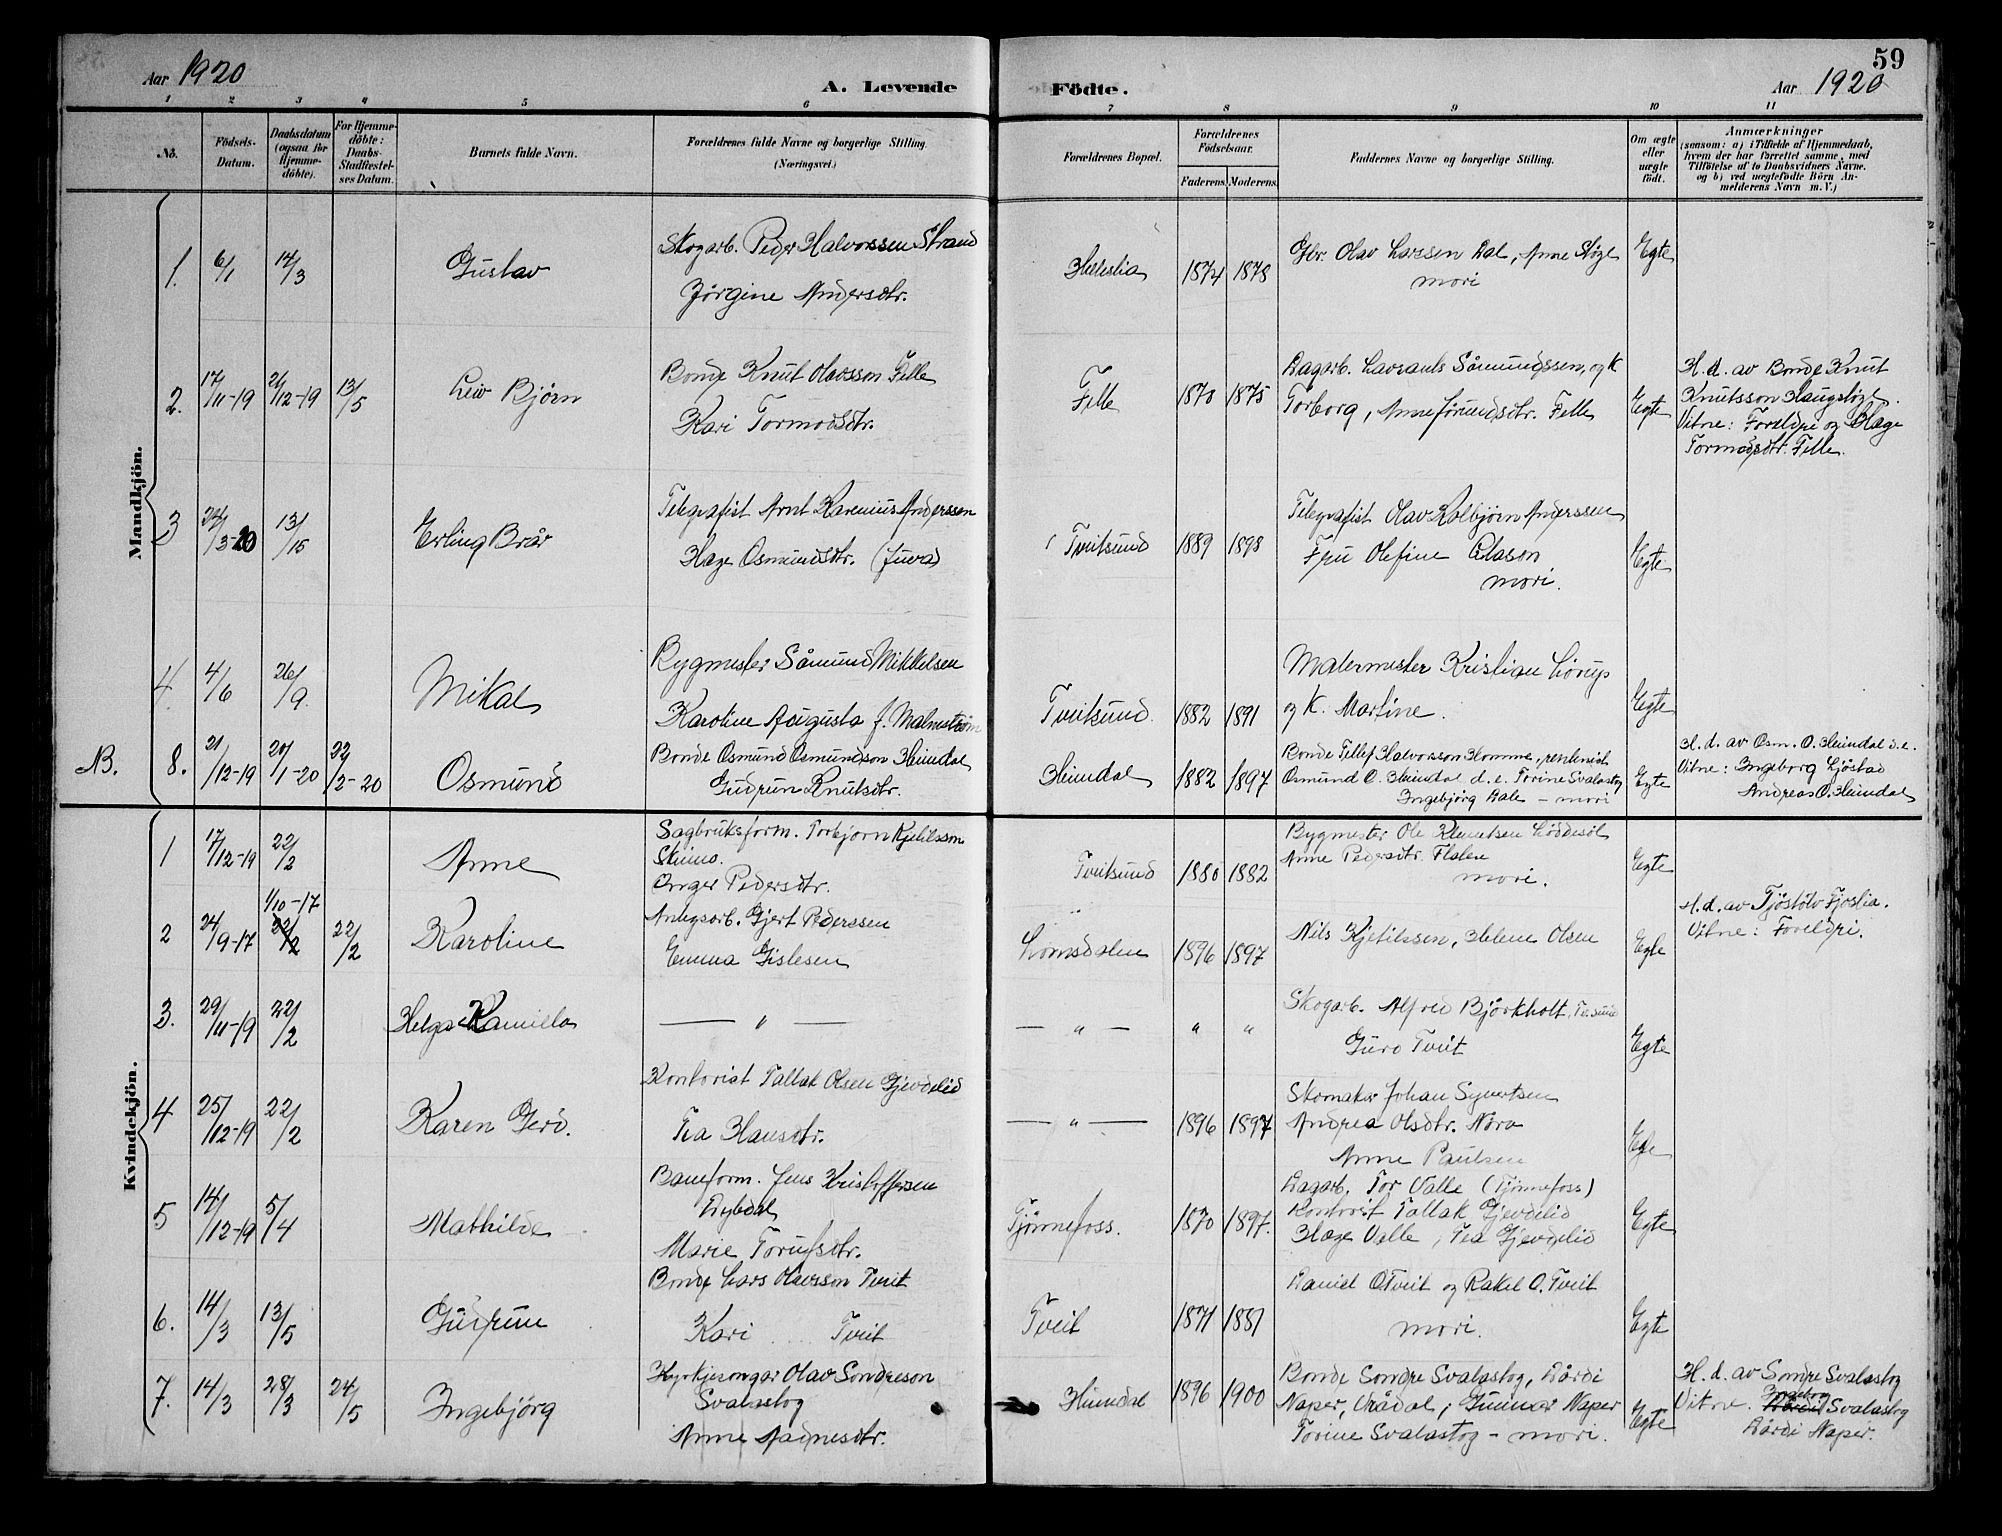 59
Aar 1920
A. Levende
Födte.
Aar 1920
1 2 3 4 5 6 7 8 9 10 11
No.
Födsels-
Datum.
Daabsdatum
(ogsaa for
Hjemme-
döbte).
For Hjemme-
döbte:
Daabs-
Stadfæstel-
ses Datum.
Barnets fulde Navn.
Forældrenes fulde Navne og borgerlige Stilling.
(Næringsvei.)
Forældrenes Bopæl.
Forældrenes
Födselsaar.
Faderens. Moderens.
Faddernes Navne og borgerlige Stilling.
Om ægte
eller
uægte
födt.
Anmærkninger
(saasom: a) i Tilfælde af Hjemmedaab,
hvem der har forrettet samme, med
Tilföielse af to Daabsvidners Navne.
og b) ved uægtefödte Börn An-
melderens Navn m. V.)
Mandkjön.
1. 6/1 14/3 Gustav
Skogarb. Peder Halvorssen Strand
Jørgine Andersdtr.
1874 1878
Gbr. Olav Larssen Dal, Anne
mori
Egte
2. 17/11-19 21/12-19 13/5 Leiv Bjørn
Bonde Knut Olavsson Felle
Kari Tormodsdtr.
Felle 1870 1875
Dagarb. Lavrants Såmundssen, og K
Torborg, Anne Jørundsdtr. Felle
Egte
H. d. av Bonde Knut
Knutsson Haugsløgt.
Vitne: Foreldri og Hæge
Tormodsdtr. Felle.
3 24/3-20 13/15 Erling Brår
Telegrafist Arnt Karenius Anderssen
Hæge Osmundsdtr. (Juva)
Tveitsund 1889 1898
Telegrafist Olav Kolbjørn Anderssen
Fru Olefine Olason
mori.
Egte
4 4/6 26/9 Mikal
Bygmester Såmund Mikkelsen
Karoline Augusta f. Malmstrøm
Tveitsund. 1882 1891
Malermester Kristian Lørup
og K. Martine.
Egte
NB. 8. 21/12-19 20/1-20 22/2-20 Osmund
Bonde Osmund Osmundson Heimdal
Gudrun Knutsdtr.
Heimdal 1882 1897
Bonde Tellef Halvorsson Homme, rentenist
Osmund O. Heimdal d. e. Torine Svalastog
Ingebjørg Dale - mori
Egte
H. d. av Osm. O. Heimdal d.e.
Vitne: Ingeborg Ljøstad
Andreas O. Heimdal
Kvindekjön.
1 17/12-19 22/2 Anne
Sagbruksform. Torbjørn Kjetilsson
Skimo.
Onger Pedersdtr.
Tveitsund 1880 1882
Bygmester Ole Klemetsen Løddesöl
Anne Pedersdtr. Flaten
mori.
Egte
2 24/9-17 1/10-17 22/2 22/2 Karoline
Anlegsarb. Gjert Pederssen
Emma Gislesen
Lomsdalen 1896 1897
Nils Kjetilssen, Helene Olsen
Egte
H. d. av Tjöstölv Fjoslia.
Vitne: Foreldri.
3. 29/11-19 22/2 Helga Kamilla
— " —
— " — " "
Skogarb. Alfred Björkholt, Tv.sund
Guro Tveit
Egte
4 25/12-19 22/2 Karen Gerd.
Kontorist Tallak Olsen Gjevdelid
Tea Hansdtr.
— " — 1896 1897
Skomaker Johan Syvertsen
Andrea Olsdtr. Nöra
Anne Paulsen
Egte
5 14/12-19 5/4 Mathilde
Baneform. Jens Kristoffersen
Dybdal
Marie Torufsdtr.
Tjönnefoss. 1870 1897.
Dagarb. Tor Valle (Tjönnefoss)
Kontorist Tallak Gjevdelid
Hæge Valle, Tea Gjevdelid
Egte
6. 14/3 13/5 Gudrun
Bonde Lars Olavsson Tveit
Kari Tveit
Tveit 1871 1881
Daniel O. Tveit og Rakel O. Tveit
mori.
Egte
7. 14/3 28/3 24/5 Ingebjörg
Kyrkjesongar Olav Sondreson
Svalastog
Anne Aadnesdtr.
Heimdal 1896 1900
Bonde Sondre Svalastog, Dårdi
Naper, Vrådal, Gunnar Naper
Torine Svalastog - mori.
Egte
H. d. av Sondre Svalastog
Vitne. Ingeborg Svalastog
Dårdi Naper.